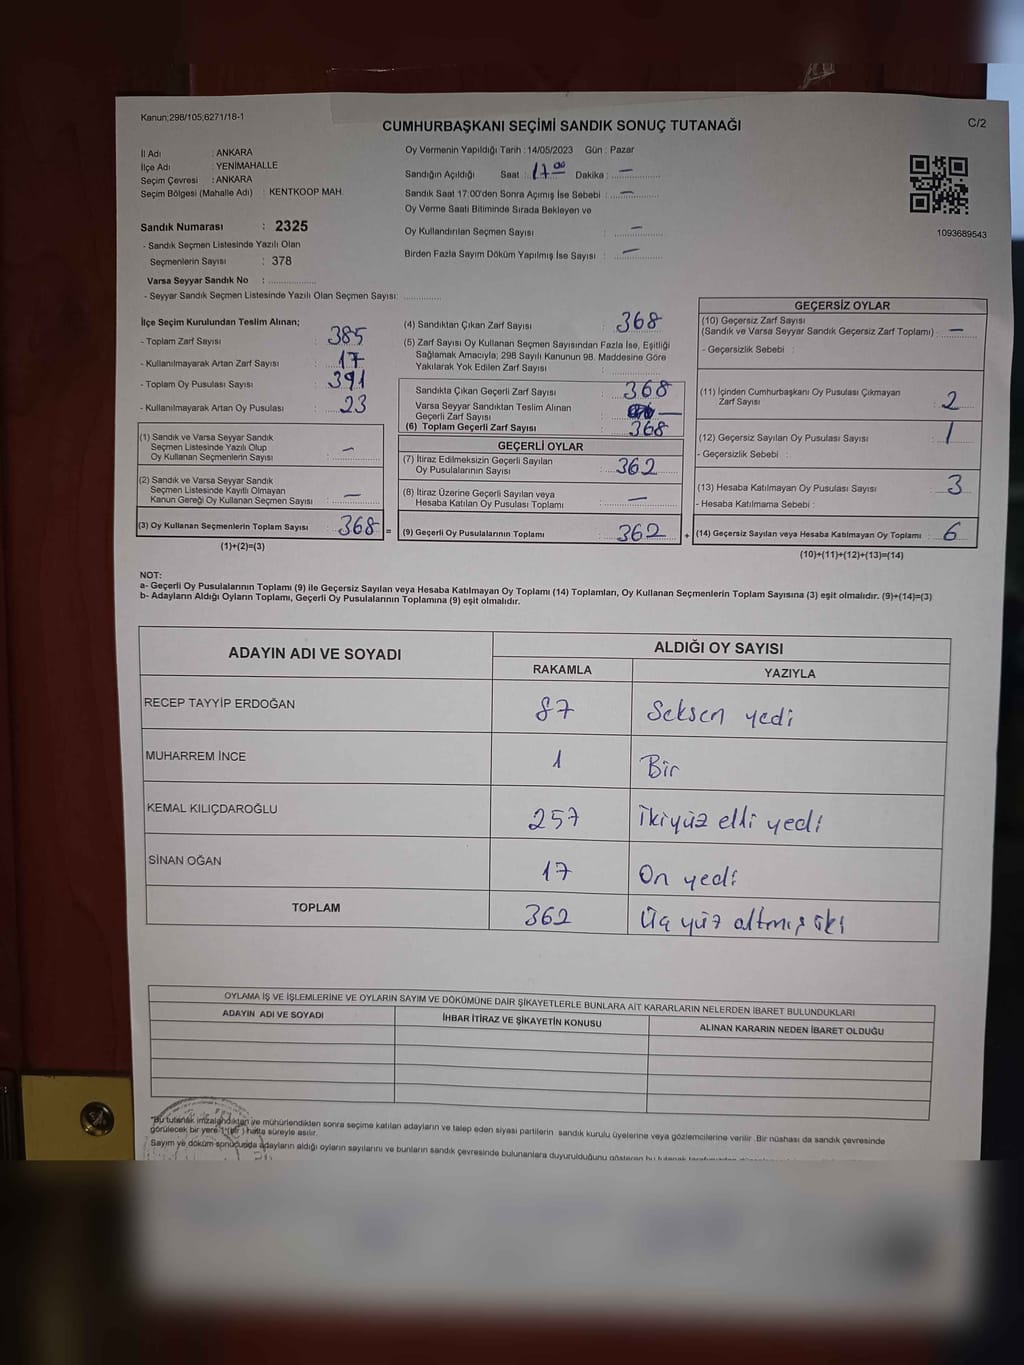 Kanun;298/105;6271/18-1
CUMHURBAŞKANI SEÇİMİ SANDIK SONUÇ TUTANAĞI
C/2
İl Adı : ANKARA
İlçe Adı : YENİMAHALLE
Seçim Çevresi : ANKARA
Seçim Bölgesi (Mahalle Adı) : KENTKOOP MAH.
Sandık Numarası : 2325
- Sandık Seçmen Listesinde Yazılı Olan
Seçmenlerin Sayısı : 378
Varsa Seyyar Sandık No : ................
- Seyyar Sandık Seçmen Listesinde Yazılı Olan Seçmen Sayısı: .............
Oy Vermenin Yapıldığı Tarih : 14/05/2023 Gün : Pazar
Sandığın Açıldığı Saat : 17.00 Dakika : —
Sandık Saat 17:00'den Sonra Açımış İse Sebebi : —
Oy Verme Saati Bitiminde Sırada Bekleyen ve
Oy Kullandırılan Seçmen Sayısı : —
Birden Fazla Sayım Döküm Yapılmış İse Sayısı : —
1093689543
İlçe Seçim Kurulundan Teslim Alınan;
- Toplam Zarf Sayısı : 385
- Kullanılmayarak Artan Zarf Sayısı : 17
- Toplam Oy Pusulası Sayısı : 391
- Kullanılmayarak Artan Oy Pusulası : 23
(1) Sandık ve Varsa Seyyar Sandık
Seçmen Listesinde Yazılı Olup
Oy Kullanan Seçmenlerin Sayısı : —
(2) Sandık ve Varsa Seyyar Sandık
Seçmen Listesinde Kayıtlı Olmayan
Kanun Gereği Oy Kullanan Seçmen Sayısı : —
(3) Oy Kullanan Seçmenlerin Toplam Sayısı : 368 =
(1)+(2)=(3)
(4) Sandıktan Çıkan Zarf Sayısı : 368
(5) Zarf Sayısı Oy Kullanan Seçmen Sayısından Fazla İse, Eşitliği
Sağlamak Amacıyla; 298 Sayılı Kanunun 98. Maddesine Göre
Yakılarak Yok Edilen Zarf Sayısı :
Sandıkta Çıkan Geçerli Zarf Sayısı : 368
Varsa Seyyar Sandıktan Teslim Alınan
Geçerli Zarf Sayısı : —
(6) Toplam Geçerli Zarf Sayısı : 368
GEÇERLİ OYLAR
(7) İtiraz Edilmeksizin Geçerli Sayılan
Oy Pusulalarının Sayısı : 362
(8) İtiraz Üzerine Geçerli Sayılan veya
Hesaba Katılan Oy Pusulası Toplamı : —
(9) Geçerli Oy Pusulalarının Toplamı : 362 +
GEÇERSİZ OYLAR
(10) Geçersiz Zarf Sayısı
(Sandık ve Varsa Seyyar Sandık Geçersiz Zarf Toplamı) : —
- Geçersizlik Sebebi :
(11) İçinden Cumhurbaşkanı Oy Pusulası Çıkmayan
Zarf Sayısı : 2
(12) Geçersiz Sayılan Oy Pusulası Sayısı : 1
- Geçersizlik Sebebi :
(13) Hesaba Katılmayan Oy Pusulası Sayısı : 3
- Hesaba Katılmama Sebebi :
(14) Geçersiz Sayılan veya Hesaba Katılmayan Oy Toplamı : 6
(10)+(11)+(12)+(13)=(14)
NOT:
a- Geçerli Oy Pusulalarının Toplamı (9) ile Geçersiz Sayılan veya Hesaba Katılmayan Oy Toplamı (14) Toplamları, Oy Kullanan Seçmenlerin Toplam Sayısına (3) eşit olmalıdır. (9)+(14)=(3)
b- Adayların Aldığı Oyların Toplamı, Geçerli Oy Pusulalarının Toplamına (9) eşit olmalıdır.
ADAYIN ADI VE SOYADI
ALDIĞI OY SAYISI
RAKAMLA YAZIYLA
RECEP TAYYİP ERDOĞAN 87 Seksen yedi
MUHARREM İNCE 1 Bir
KEMAL KILIÇDAROĞLU 257 İkiyüz elli yedi
SİNAN OĞAN 17 On yedi
TOPLAM 362 Üç yüz altmış iki
OYLAMA İŞ VE İŞLEMLERİNE VE OYLARIN SAYIM VE DÖKÜMÜNE DAİR ŞİKAYETLERLE BUNLARA AİT KARARLARIN NELERDEN İBARET BULUNDUKLARI
ADAYIN ADI VE SOYADI İHBAR İTİRAZ VE ŞİKAYETİN KONUSU ALINAN KARARIN NEDEN İBARET OLDUĞU
"Bu tutanak imzalandıktan ve mühürlendikten sonra seçime katılan adayların ve talep eden siyasi partilerin sandık kurulu üyelerine veya gözlemcilerine verilir .Bir nüshası da sandık çevresinde
görülecek bir yere 1 (bir ) hafta süreyle asılır.
Sayım ve döküm sonucunda adayların aldığı oyların sayılarını ve bunların sandık çevresinde bulunanlara duyurulduğunu gösteren bu tutanak